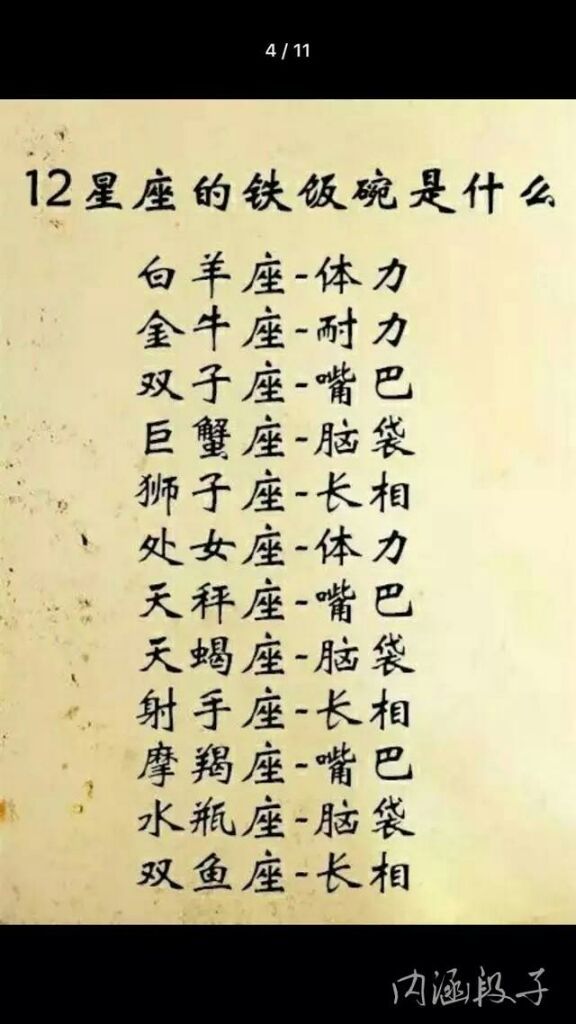 4 / 11
12星座的铁饭碗是什么
白羊座-体力
金牛座-耐力
双子座-嘴巴
巨蟹座-脑袋
狮子座-长相
处女座-体力
天秤座-嘴巴
天蝎座-脑袋
射手座-长相
摩羯座-嘴巴
水瓶座-脑袋
双鱼座-长相
内涵段子